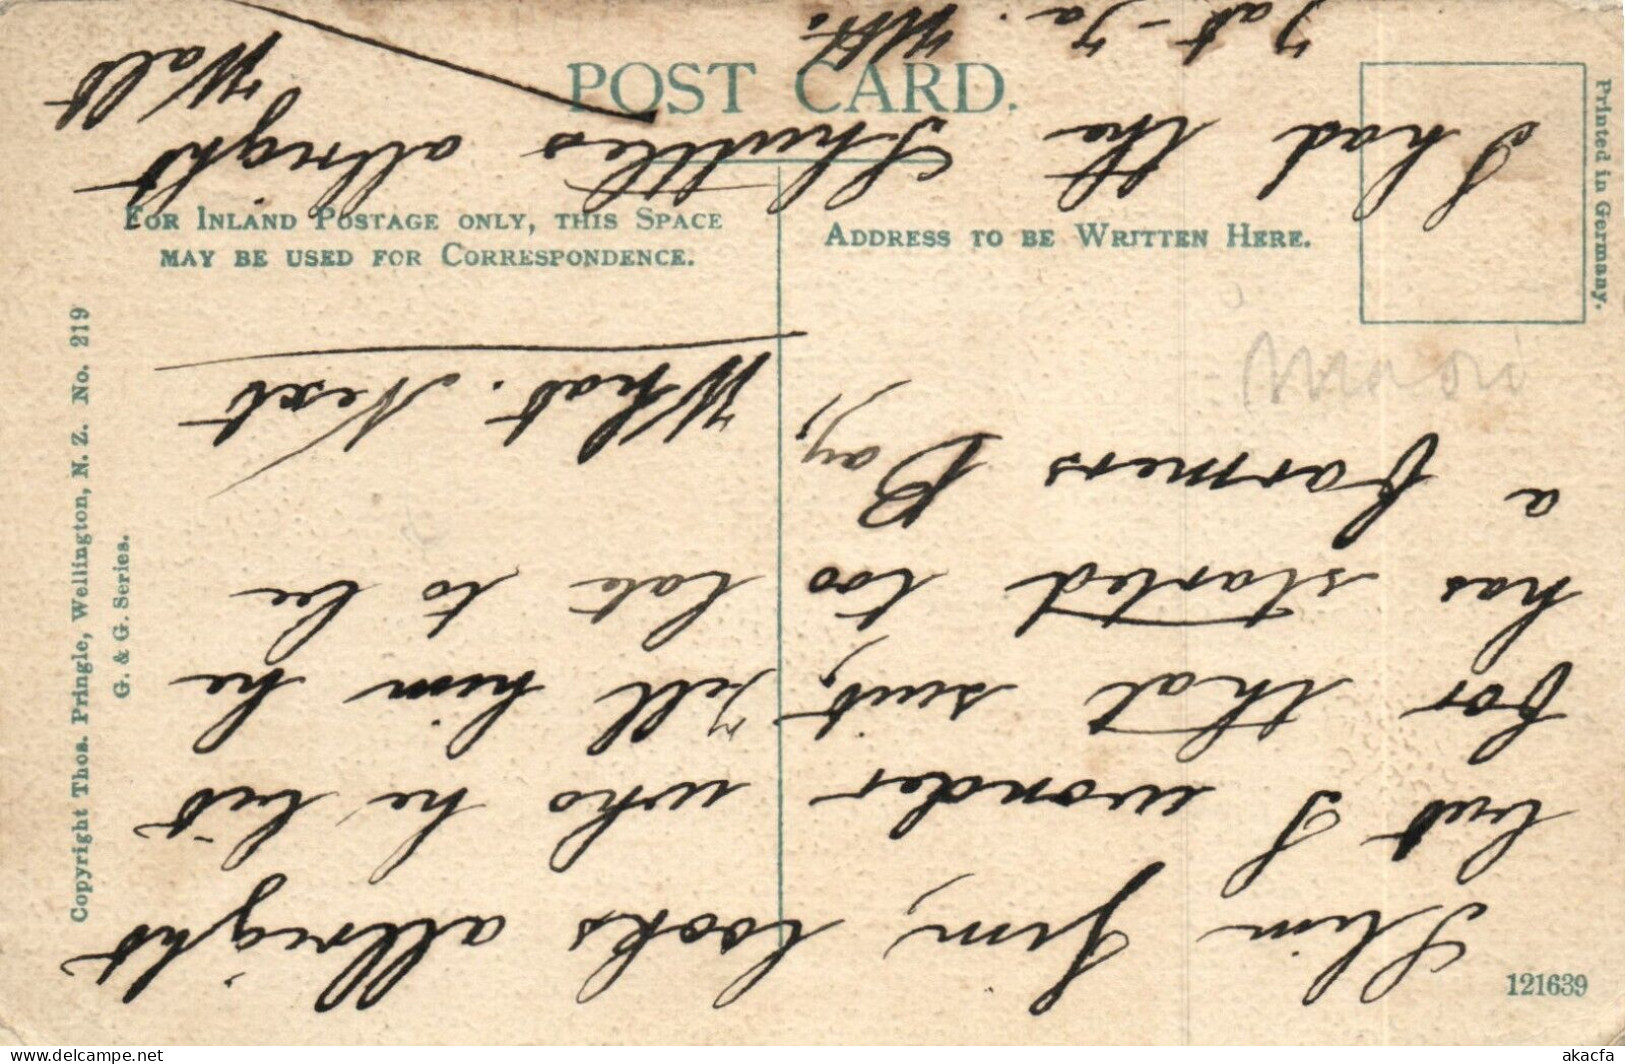 POST CARD.
FOR INLAND POSTAGE ONLY, THIS SPACE
MAY BE USED FOR CORRESPONDENCE.
ADDRESS TO BE WRITTEN HERE.
Printed in Germany.
Copyright Thos. Pringle, Wellington, N. Z. No. 219
G. & G. Series.
121639
Maori
Slim Jim, looks allright
but I wonder who he bit
for that suit, Tell him he
has started too late to be
a farmers Boy,
What. Next
I had the Shuttles allright
Walt
akacfa